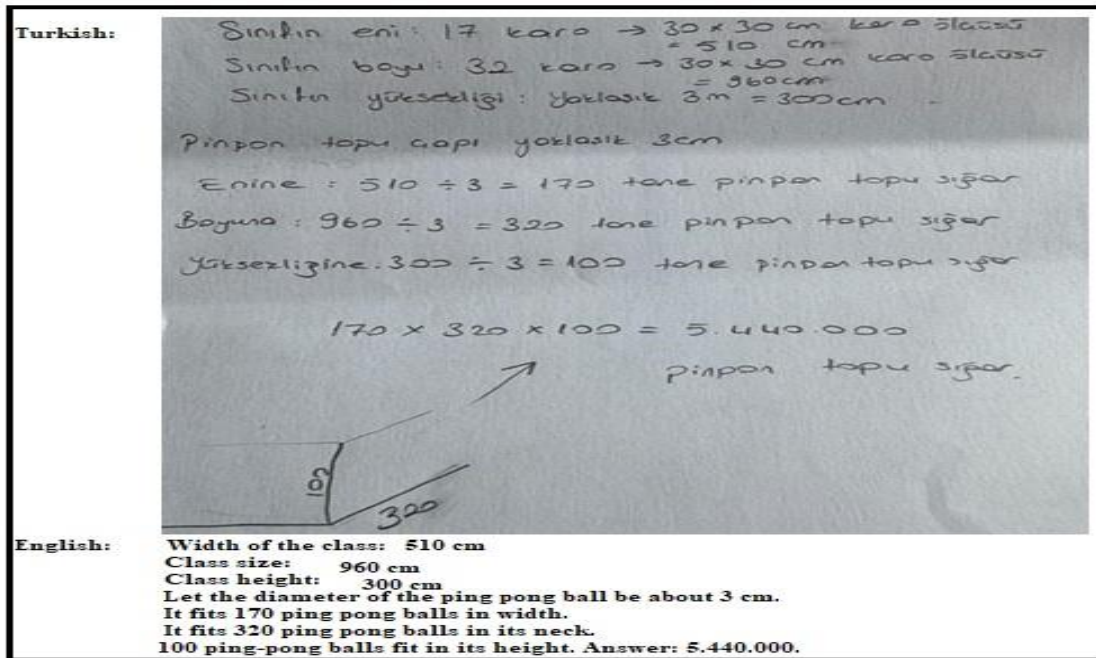 Turkish:
Sınıfın eni: 17 karo → 30 x 30 cm karo ölçüsü
= 510 cm
Sınıfın boyu: 32 karo → 30 x 30 cm karo ölçüsü
= 960 cm
Sınıfın yüksekliği: Yaklaşık 3m = 300 cm
Pinpon topu çapı yaklaşık 3cm
Enine: 510 ÷ 3 = 170 tane pinpon topu sığar
Boyuna: 960 ÷ 3 = 320 tane pinpon topu sığar
Yüksekliğine: 300 ÷ 3 = 100 tane pinpon topu sığar
170 x 320 x 100 = 5.440.000
pinpon topu sığar.
100
320
English:
Width of the class: 510 cm
Class size: 960 cm
Class height: 300 cm
Let the diameter of the ping pong ball be about 3 cm.
It fits 170 ping pong balls in width.
It fits 320 ping pong balls in its neck.
100 ping-pong balls fit in its height. Answer: 5.440.000.